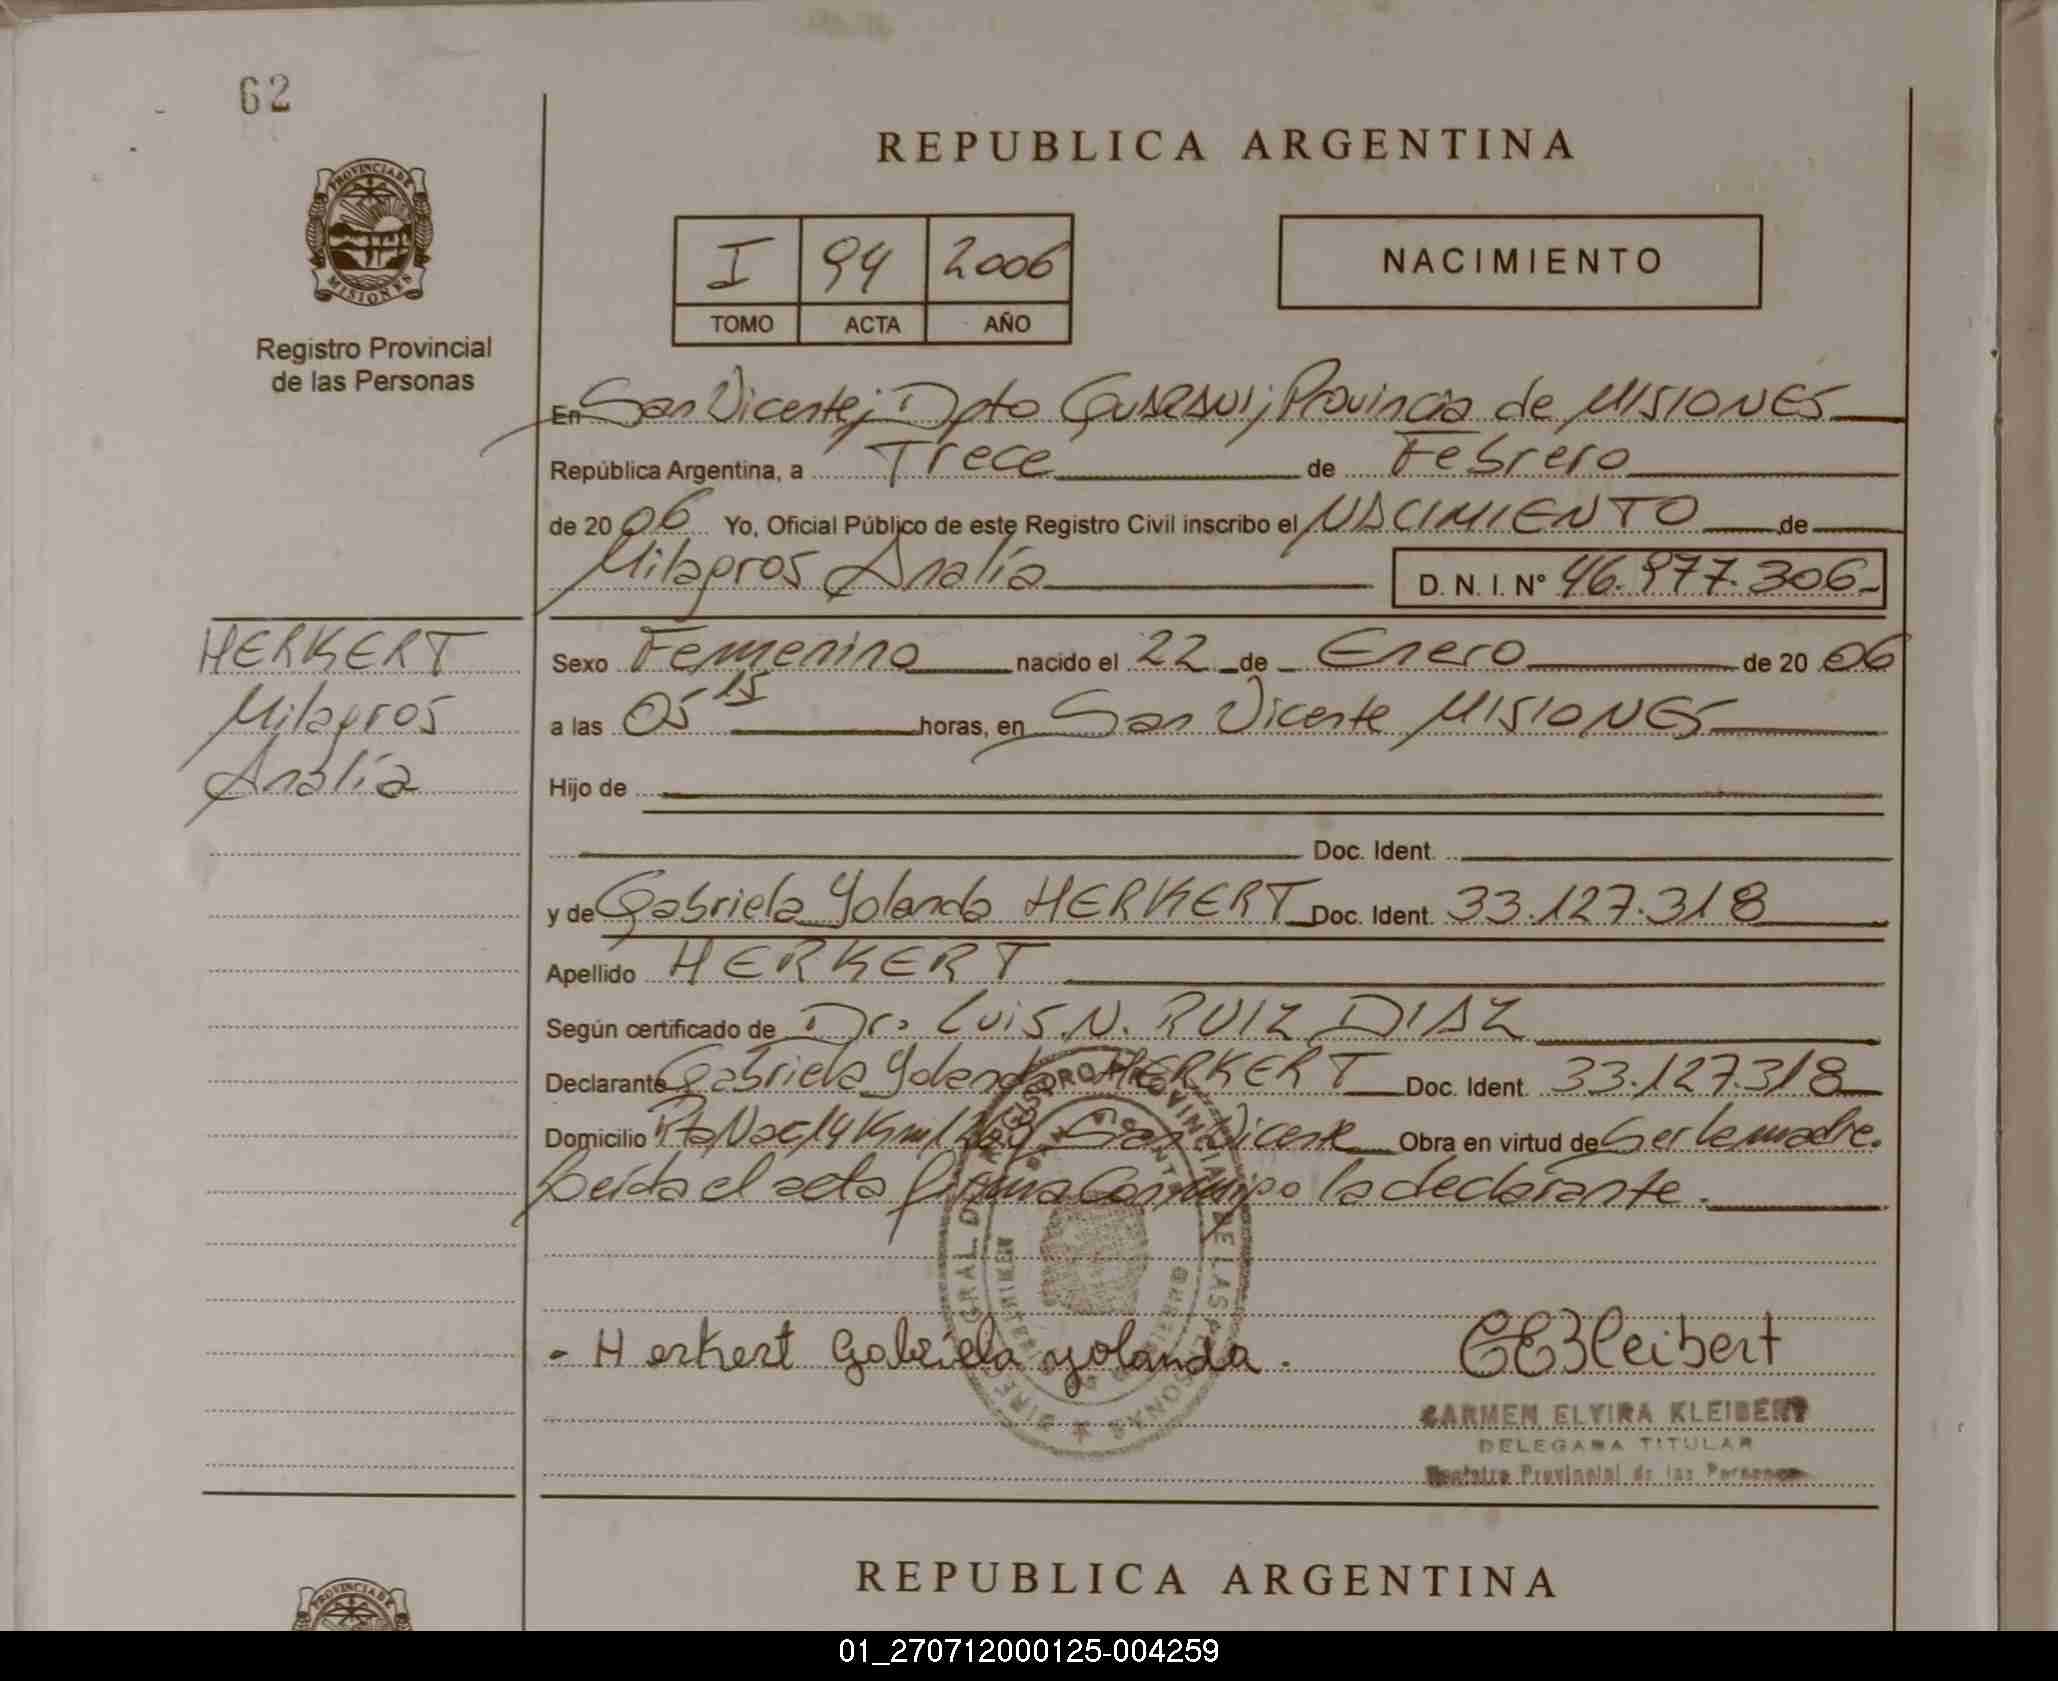 62
REPUBLICA ARGENTINA
PROVINCIA DE
MISIONES
Registro Provincial
de las Personas
I 94 2006
TOMO ACTA AÑO
NACIMIENTO
En San Vicente; Dpto GUARANI; Provincia de MISIONES
República Argentina, a Trece de Febrero
de 20 06 Yo, Oficial Público de este Registro Civil inscribo el NACIMIENTO de
Milagros Analía D. N. I. N° 46.977.306-
HERKERT
Milagros
Analía
Sexo Femenino nacido el 22 de Enero de 20 06
a las 05 15 horas, en San Vicente MISIONES
Hijo de
Doc. Ident.
y de Gabriela Yolanda HERKERT Doc. Ident. 33.127.318
Apellido HERKERT
Según certificado de Dr. Luis. N. RUIZ DIAZ
Declarante Gabriela Yolanda HERKERT Doc. Ident. 33.127.318
Domicilio Rta Nac 14 Km San Vicente Obra en virtud de Ser la madre.
Leída el acta firma Conmigo la declarante.
- Herkert Gabriela yolanda. CEKleibert
CARMEN ELVIRA KLEIBERT
DELEGADA TITULAR
Registro Provincial de las Personas
REPUBLICA ARGENTINA
PROVINCIA DE
01_270712000125-004259